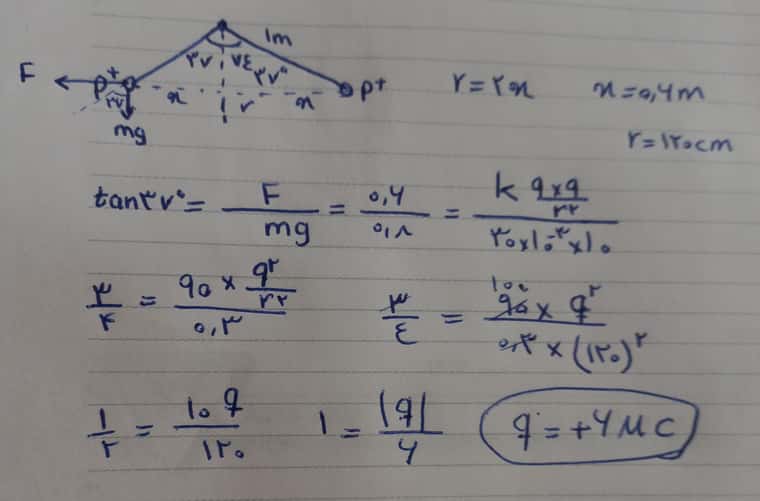 ۱m
۳۷ ۷٤ ۳۷°
F P⁺ x r x P⁺ r = ۲x x = ۰,۶m
۳۷
mg r = ۱۲۰cm
tan۳۷° = F/mg = ۰,۶/۰,۸ = (k q×q/r۲)/(۳۰×۱۰⁻۳×۱۰)
۳/۴ = (۹۰ × q۲/r۲)/۰,۳ ۳/٤ = (۱۰۰ ۹۰ × q۲)/(۰,۳ × (۱۲۰)۲)
۱/۲ = ۱۰ q/۱۲۰ ۱ = |q|/۶ q = +۶ MC